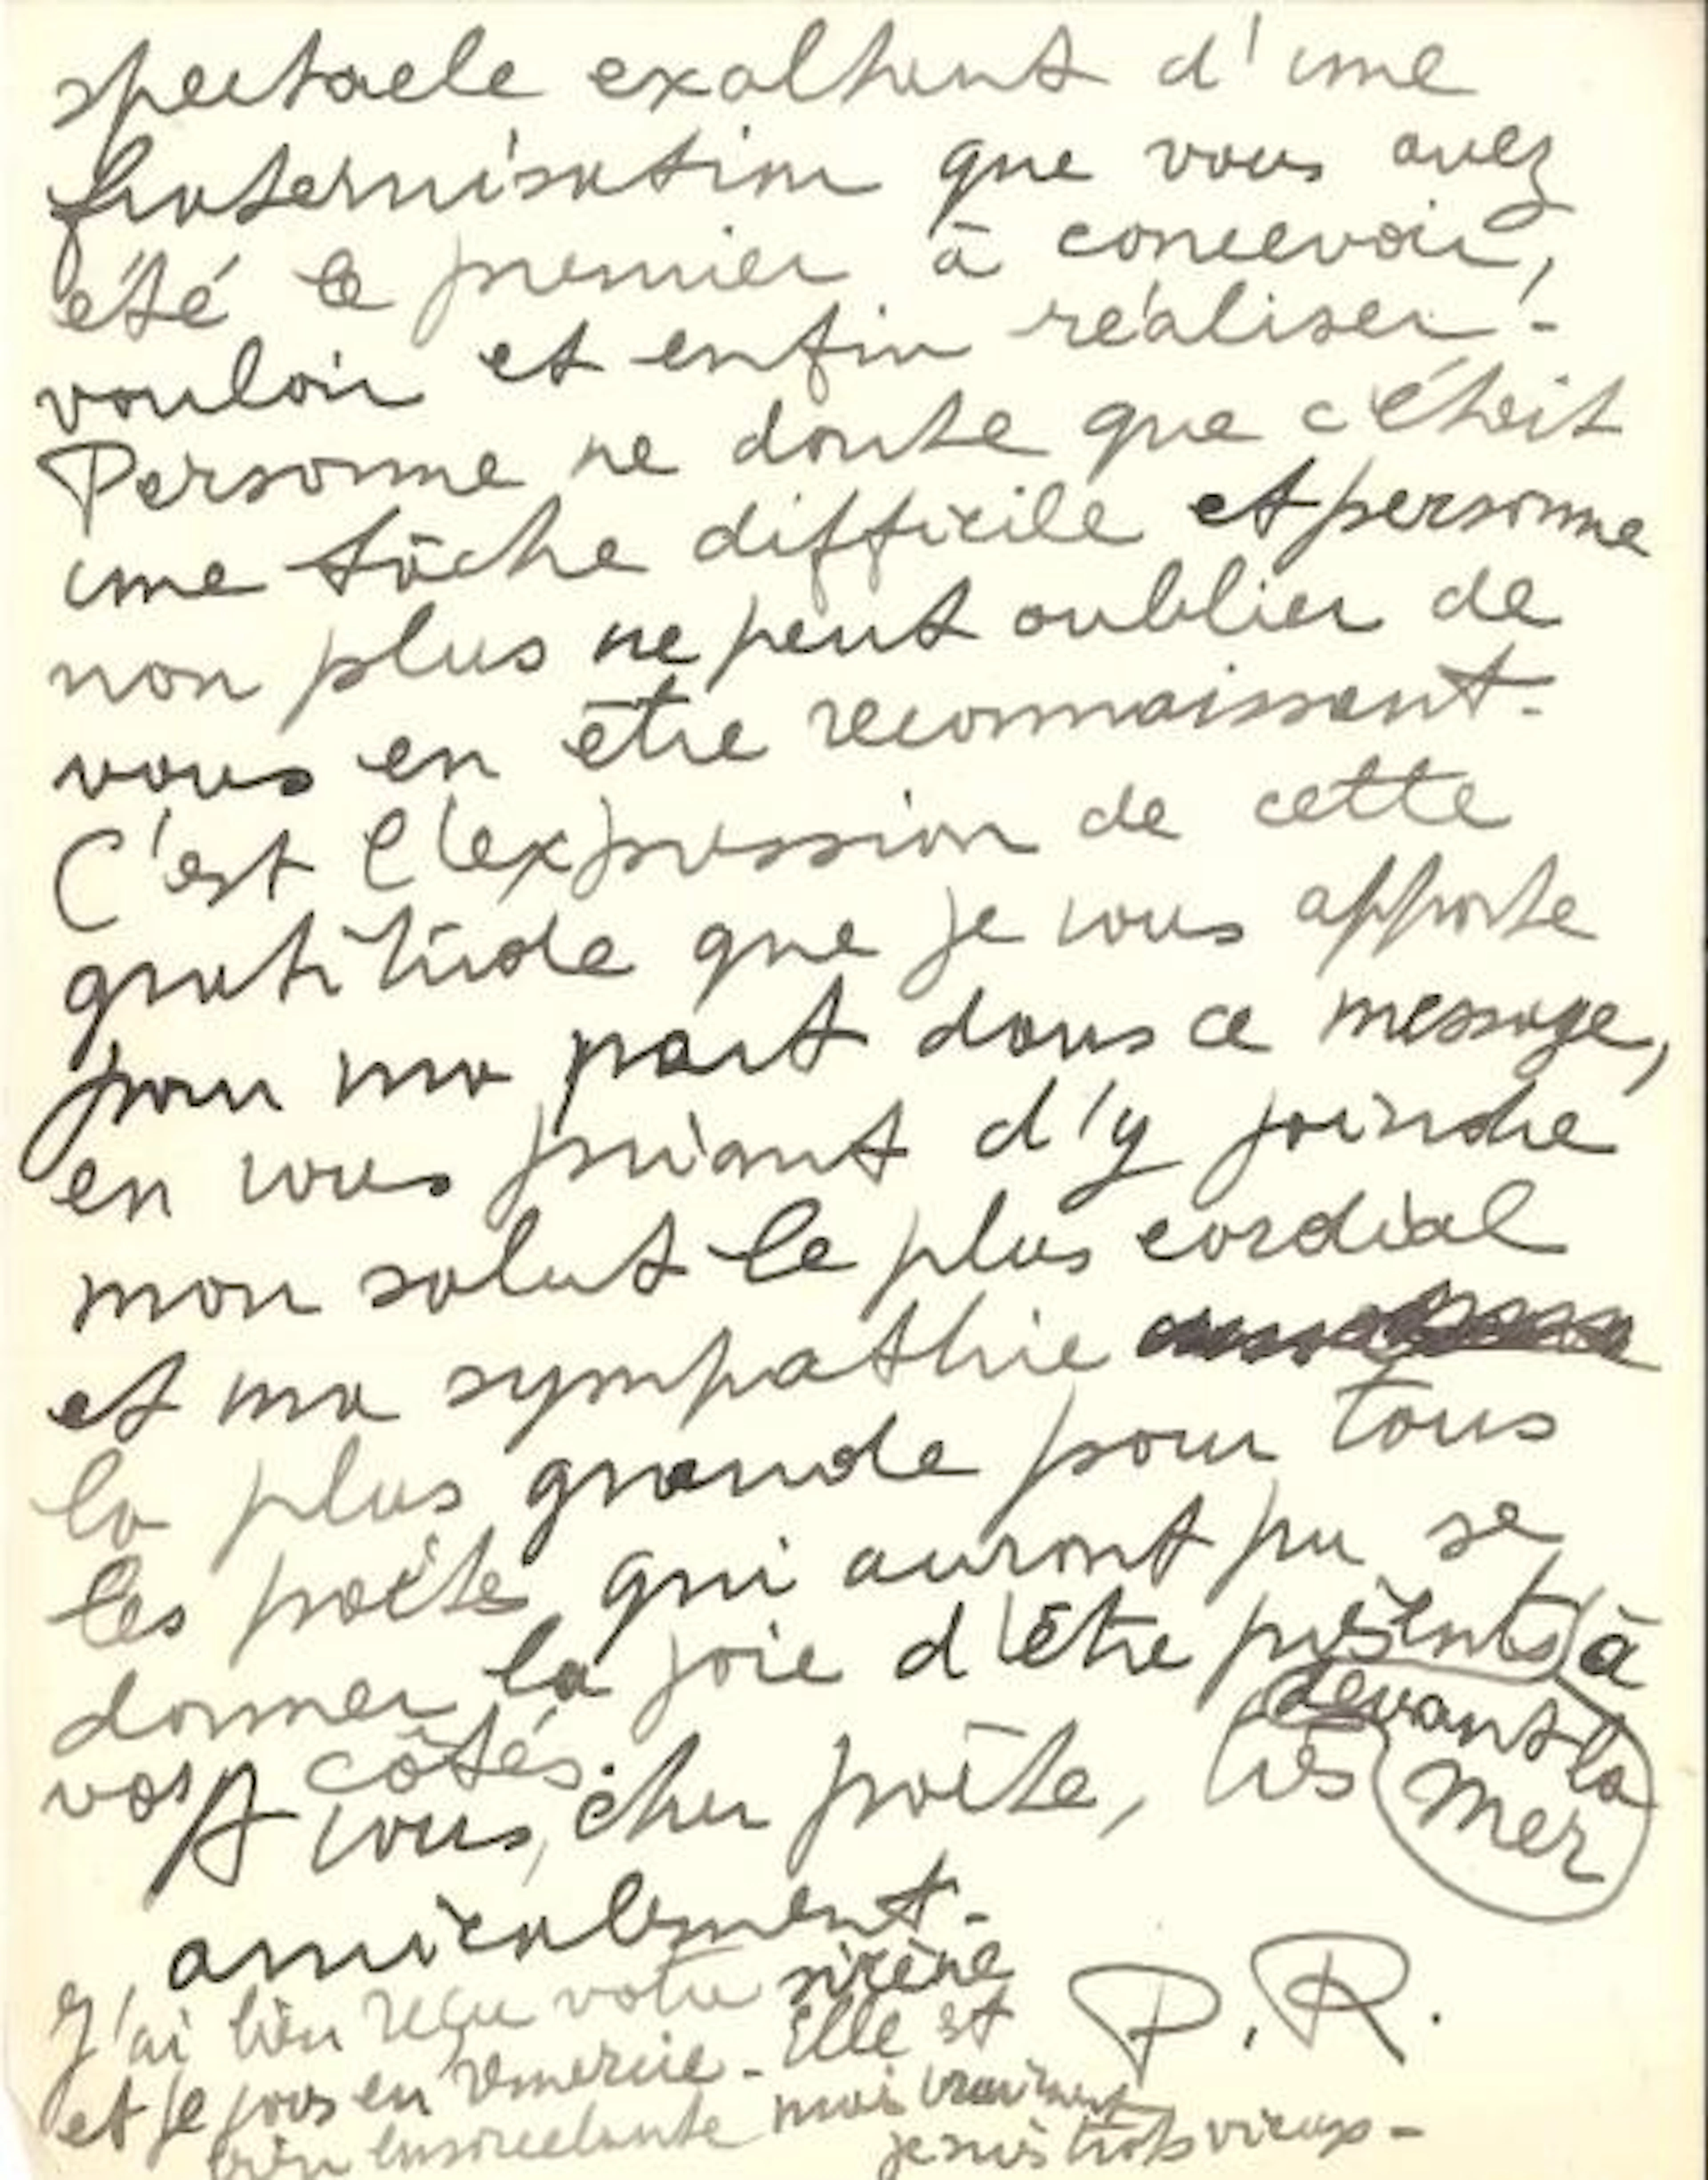 spectacle exaltant d'une
fraternisation que vous avez
été le premier à concevoir,
vouloir et enfin réaliser -
Personne ne doute que c'était
une tâche difficile et personne
non plus ne peut oublier de
vous en être reconnaissant -
C'est l'expression de cette
gratitude que je vous apporte
pour ma part dans ce message,
en vous priant d'y joindre
mon salut le plus cordial
et ma sympathie
la plus grande pour tous
les poètes qui auront pu se
donner la joie d'être présents à
devant la
mer
vos côtés.
A vous, cher poète, très
amicalement -
P.R.
J'ai bien reçu votre sirène
et je vous en remercie - Elle est
bien ensorcelante mais vraiment
je suis trop vieux -